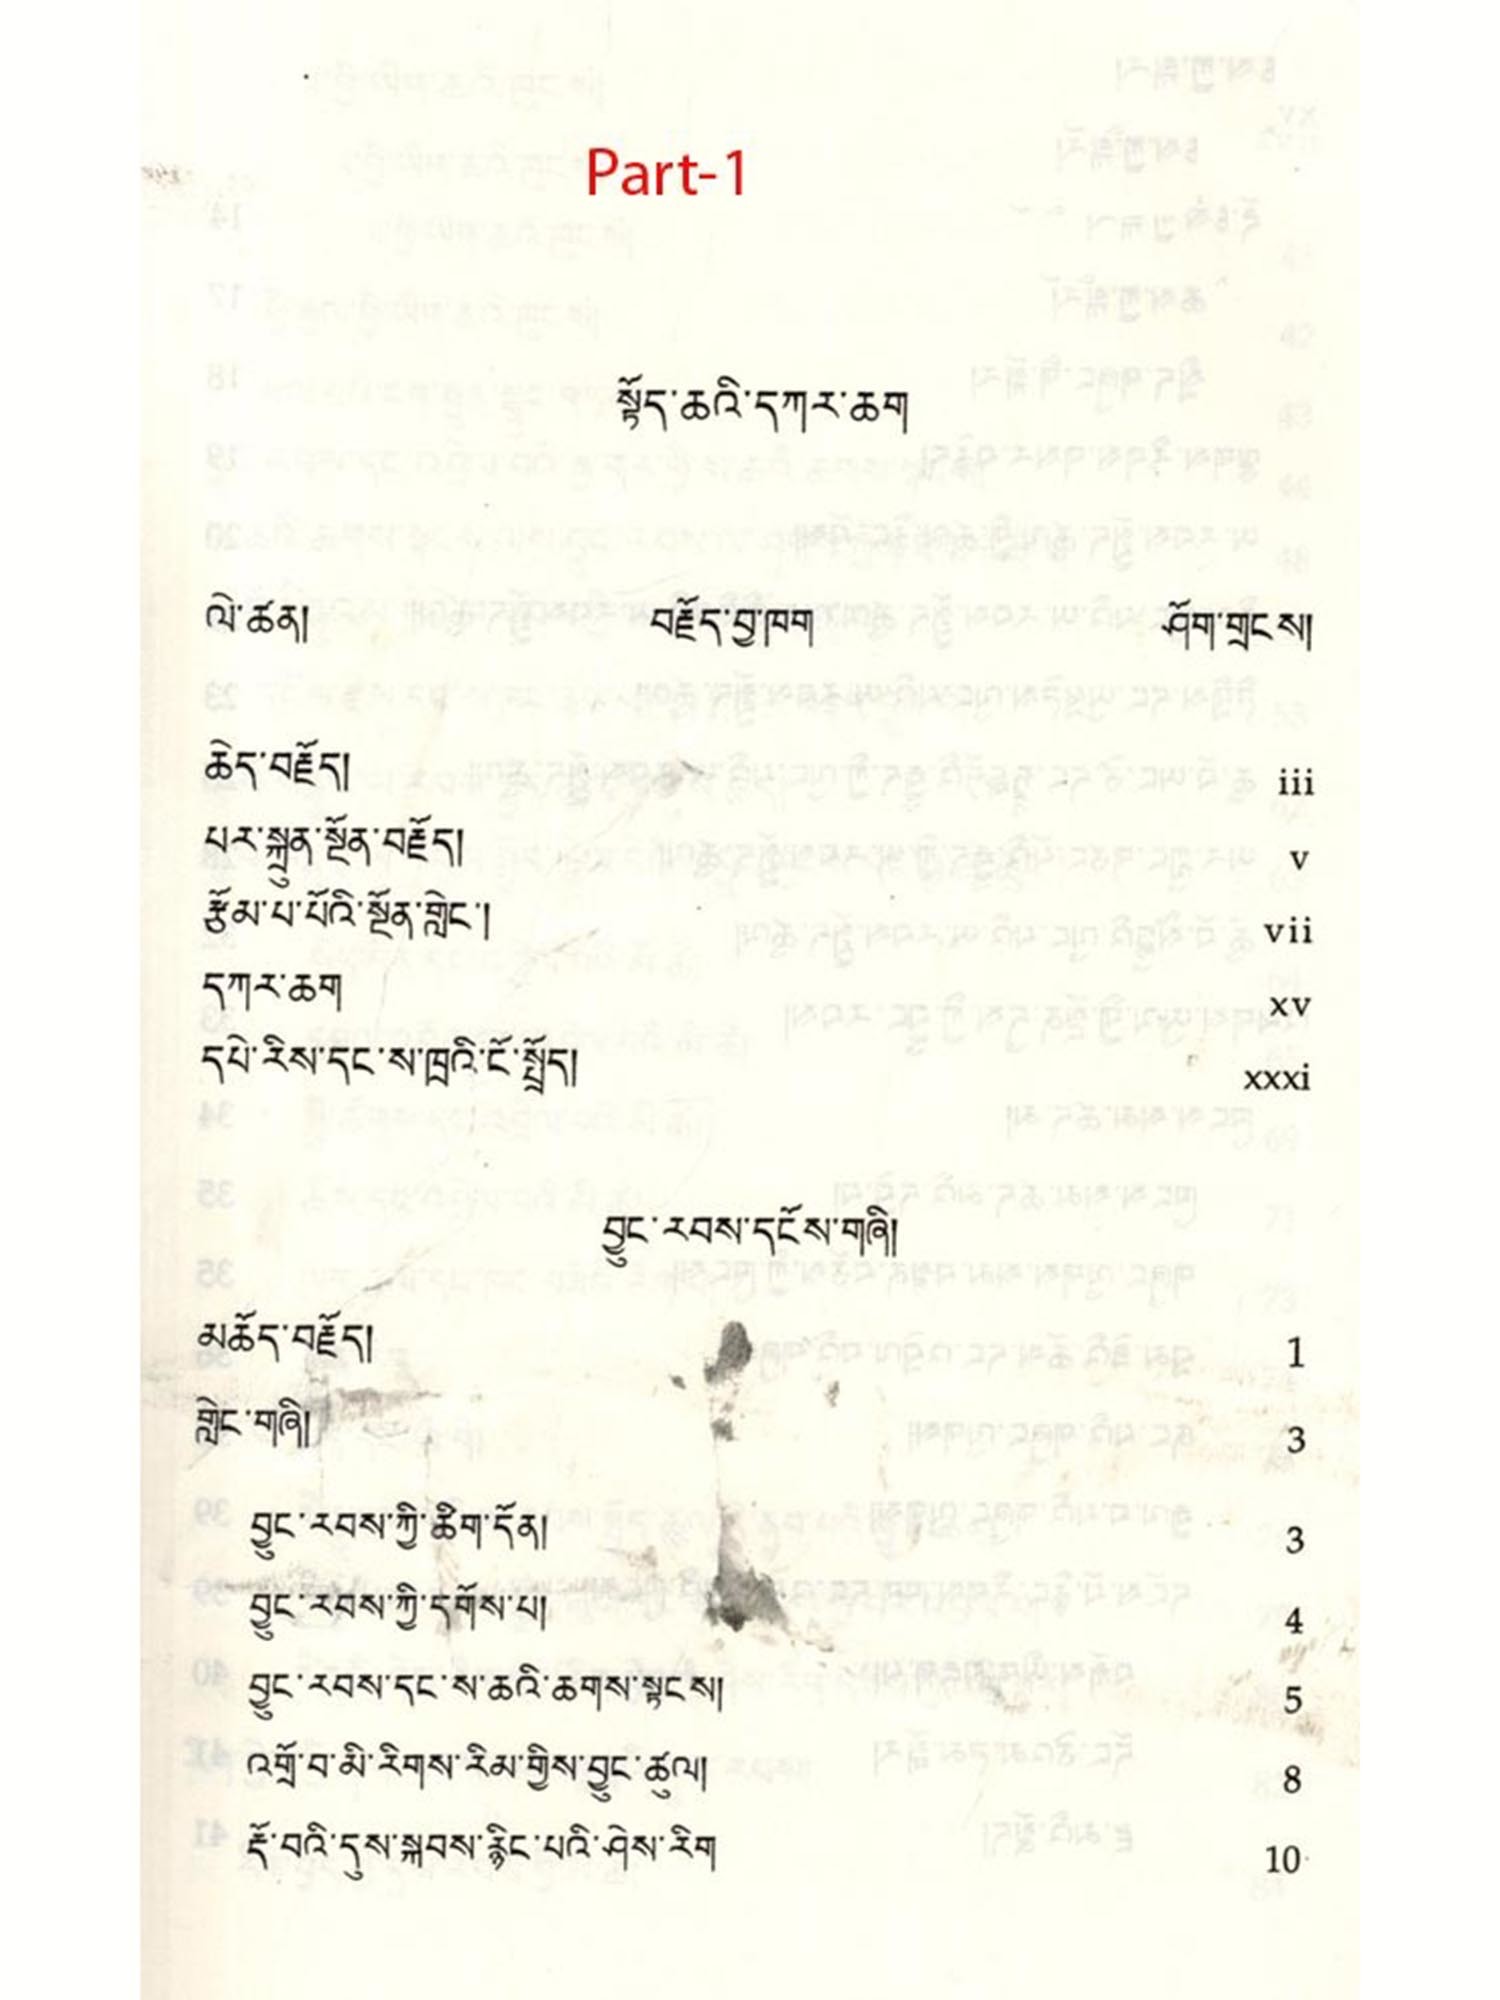 Part-1
སྟོད་ཆའི་དཀར་ཆག
ལེ་ཚན། བརྗོད་བྱ་ཁག ཤོག་གྲངས།
ཆེད་བརྗོད། iii
པར་སྐྲུན་སྔོན་བརྗོད། v
རྩོམ་པ་པོའི་སྔོན་གླེང་། vii
དཀར་ཆག xv
དཔེ་རིས་དང་ས་ཁྲའི་ངོ་སྤྲོད། xxxi
བྱུང་རབས་དངོས་གཞི།
མཆོད་བརྗོད། 1
གླེང་གཞི། 3
བྱུང་རབས་ཀྱི་ཚིག་དོན། 3
བྱུང་རབས་ཀྱི་དགོས་པ། 4
བྱུང་རབས་དང་ས་ཆའི་ཆགས་སྟངས། 5
འགྲོ་བ་མི་རིགས་རིམ་གྱིས་བྱུང་ཚུལ། 8
རྡོ་བའི་དུས་སྐབས་རྙིང་པའི་ཤེས་རིག 10